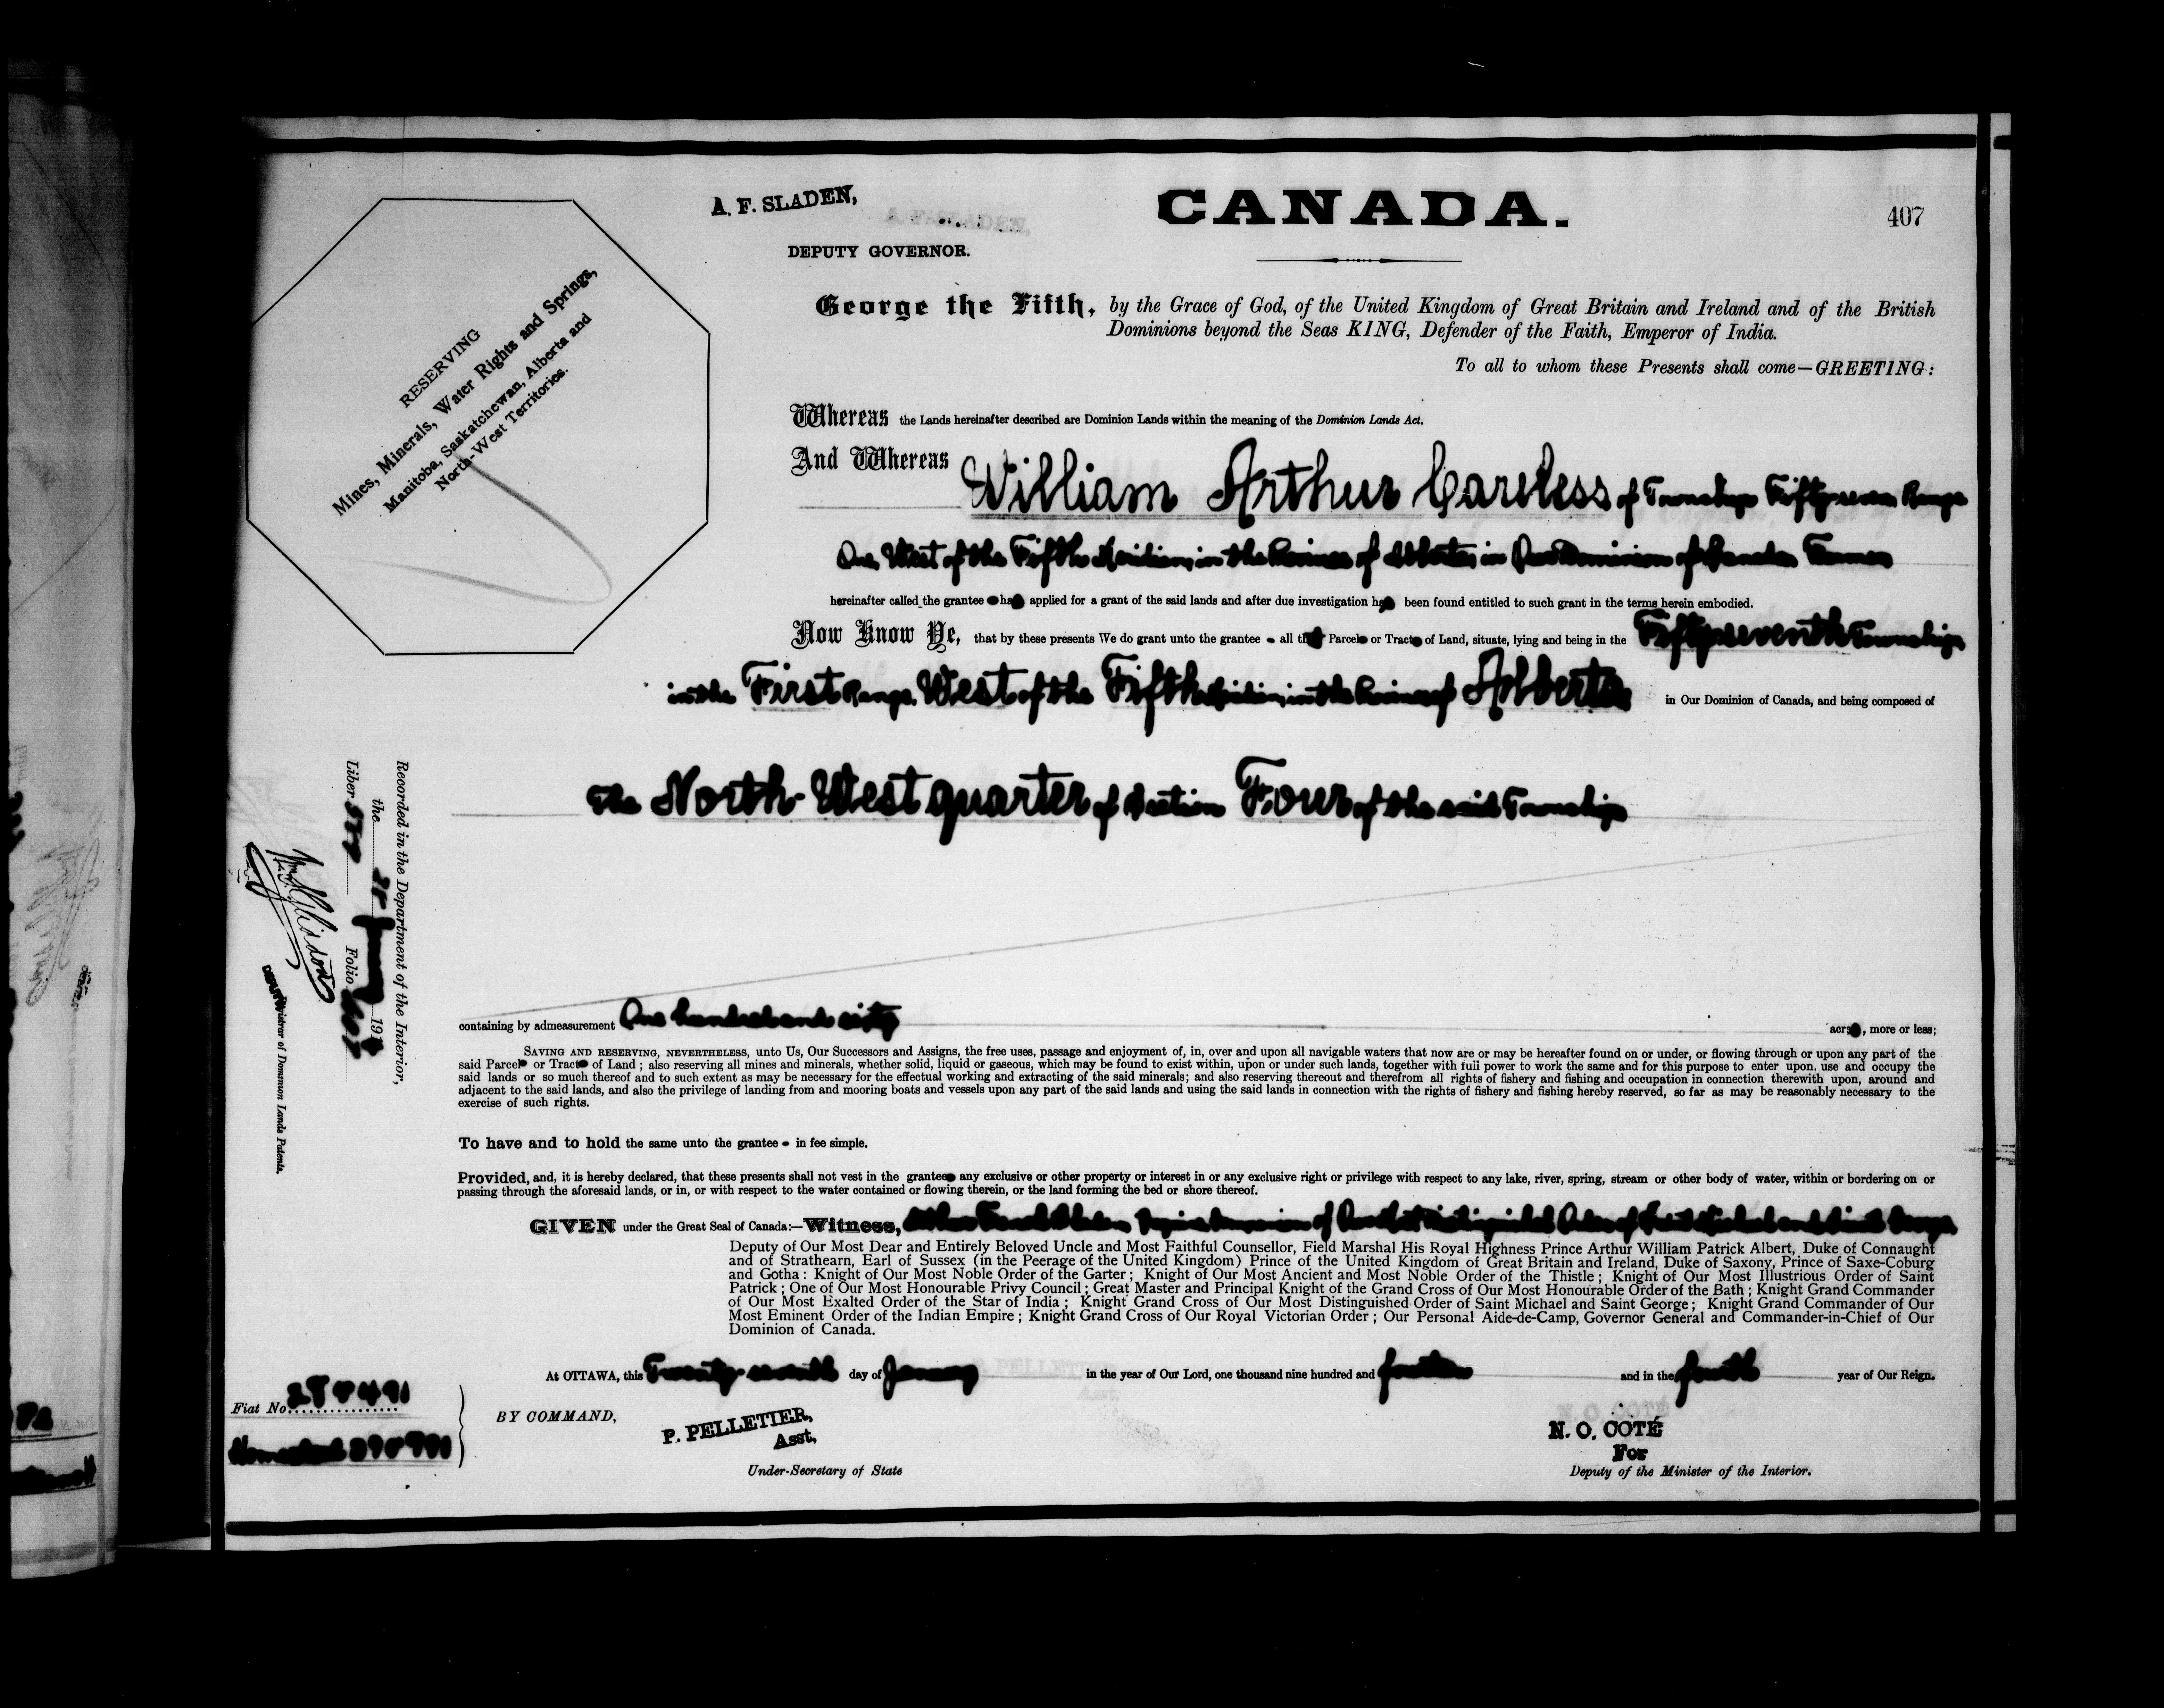 A. F. SLADEN,
DEPUTY GOVERNOR.
CANADA.
407
RESERVING
Mines, Minerals, Water Rights and Springs,
Manitoba, Saskatchewan, Alberta and
North-West Territories.
George the Fifth, by the Grace of God, of the United Kingdom of Great Britain and Ireland and of the British
Dominions beyond the Seas KING, Defender of the Faith, Emperor of India.
To all to whom these Presents shall come—GREETING:
Whereas the Lands hereinafter described are Dominion Lands within the meaning of the Dominion Lands Act.
And Whereas William Arthur Careless of Township Fifty-seven Range
One West of the Fifth Meridian, in the Province of Alberta in Our Dominion of Canada Farmer
hereinafter called the grantee has applied for a grant of the said lands and after due investigation has been found entitled to such grant in the terms herein embodied.
Now Know Ye, that by these presents We do grant unto the grantee all that Parcel or Tract of Land, situate, lying and being in the Fifty-seventh Township
in the First Range, West of the Fifth Meridian, in the Province of Alberta in Our Dominion of Canada, and being composed of
The North-West quarter of Section Four of the said Township
containing by admeasurement One hundred and sixty acres, more or less;
SAVING AND RESERVING, NEVERTHELESS, unto Us, Our Successors and Assigns, the free uses, passage and enjoyment of, in, over and upon all navigable waters that now are or may be hereafter found on or under, or flowing through or upon any part of the
said Parcel or Tract of Land ; also reserving all mines and minerals, whether solid, liquid or gaseous, which may be found to exist within, upon or under such lands, together with full power to work the same and for this purpose to enter upon, use and occupy the
said lands or so much thereof and to such extent as may be necessary for the effectual working and extracting of the said minerals; and also reserving thereout and therefrom all rights of fishery and fishing and occupation in connection therewith upon, around and
adjacent to the said lands, and also the privilege of landing from and mooring boats and vessels upon any part of the said lands and using the said lands in connection with the rights of fishery and fishing hereby reserved, so far as may be reasonably necessary to the
exercise of such rights.
To have and to hold the same unto the grantee in fee simple.
Provided, and, it is hereby declared, that these presents shall not vest in the grantee any exclusive or other property or interest in or any exclusive right or privilege with respect to any lake, river, spring, stream or other body of water, within or bordering on or
passing through the aforesaid lands, or in, or with respect to the water contained or flowing therein, or the land forming the bed or shore thereof.
GIVEN under the Great Seal of Canada:—Witness, Arthur Sladen Esquire Companion of Our Most Distinguished Order of Saint Michael and Saint George
Deputy of Our Most Dear and Entirely Beloved Uncle and Most Faithful Counsellor, Field Marshal His Royal Highness Prince Arthur William Patrick Albert, Duke of Connaught
and of Strathearn, Earl of Sussex (in the Peerage of the United Kingdom) Prince of the United Kingdom of Great Britain and Ireland, Duke of Saxony, Prince of Saxe-Coburg
and Gotha : Knight of Our Most Noble Order of the Garter ; Knight of Our Most Ancient and Most Noble Order of the Thistle ; Knight of Our Most Illustrious Order of Saint
Patrick ; One of Our Most Honourable Privy Council ; Great Master and Principal Knight of the Grand Cross of Our Most Honourable Order of the Bath ; Knight Grand Commander
of Our Most Exalted Order of the Star of India ; Knight Grand Cross of Our Most Distinguished Order of Saint Michael and Saint George ; Knight Grand Commander of Our
Most Eminent Order of the Indian Empire ; Knight Grand Cross of Our Royal Victorian Order ; Our Personal Aide-de-Camp, Governor General and Commander-in-Chief of Our
Dominion of Canada.
At OTTAWA, this Twenty- day of January in the year of Our Lord, one thousand nine hundred and fourteen and in the fourth year of Our Reign.
BY COMMAND,
P. PELLETIER,
Asst.
Under-Secretary of State
N. O. COTÉ
For
Deputy of the Minister of the Interior.
Fiat No.
Homestead
Recorded in the Department of the Interior,
the 191
Liber Folio 407
Registrar of Dominion Lands Patents.